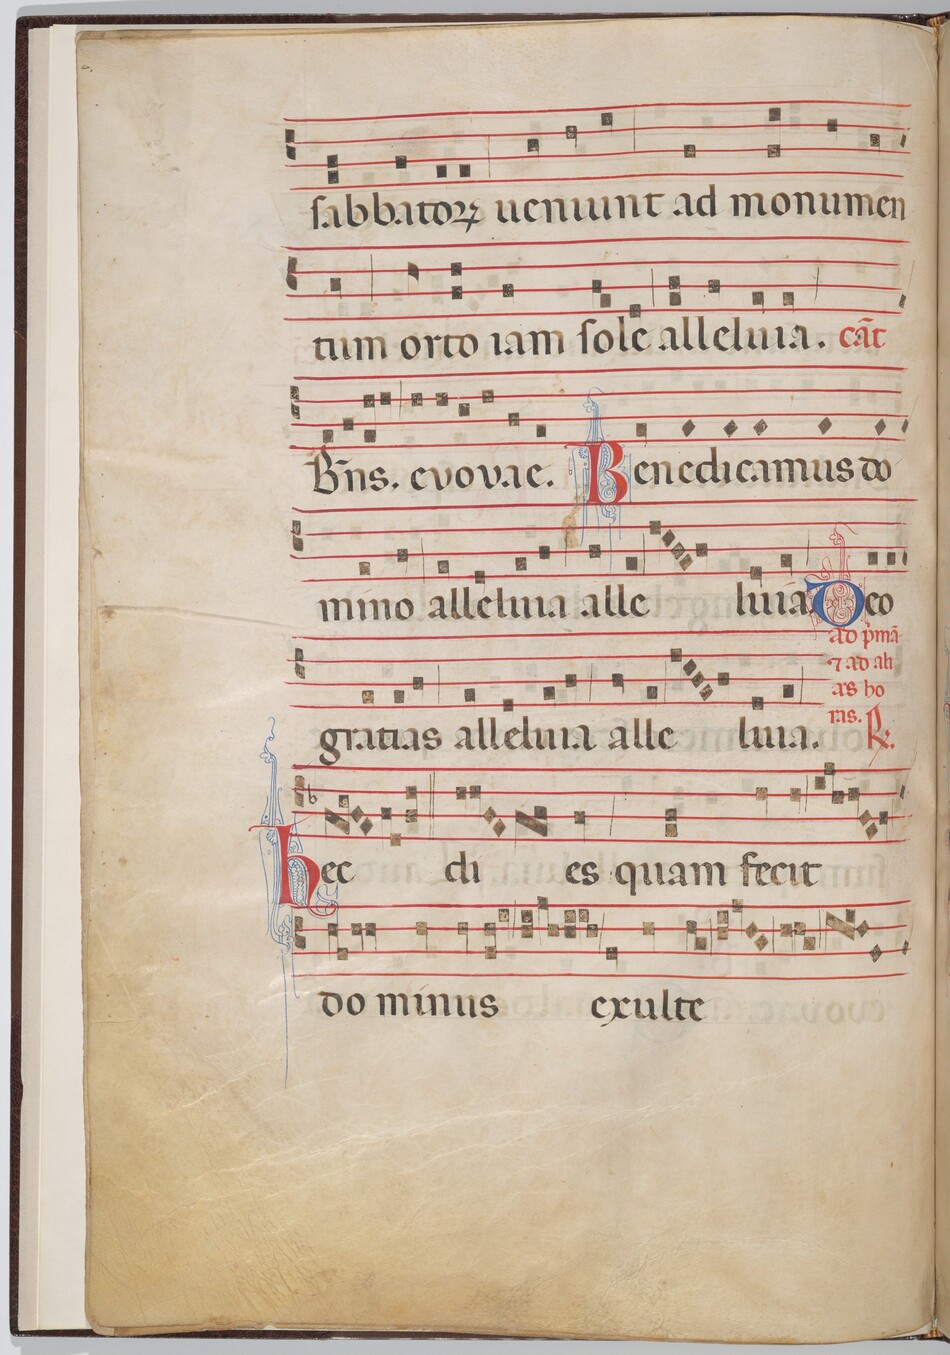 sabbatoꝝ ueniunt ad monumen
tum orto iam sole alleluia. cãt
Bñs. evovae. Benedicamus do
mino alleluia alle luia. Deo
ad p̃mã
⁊ ad ali
as ho
ras. ℟.
gratias alleluia alle luia.
hec di es quam fecit
do minus exulte